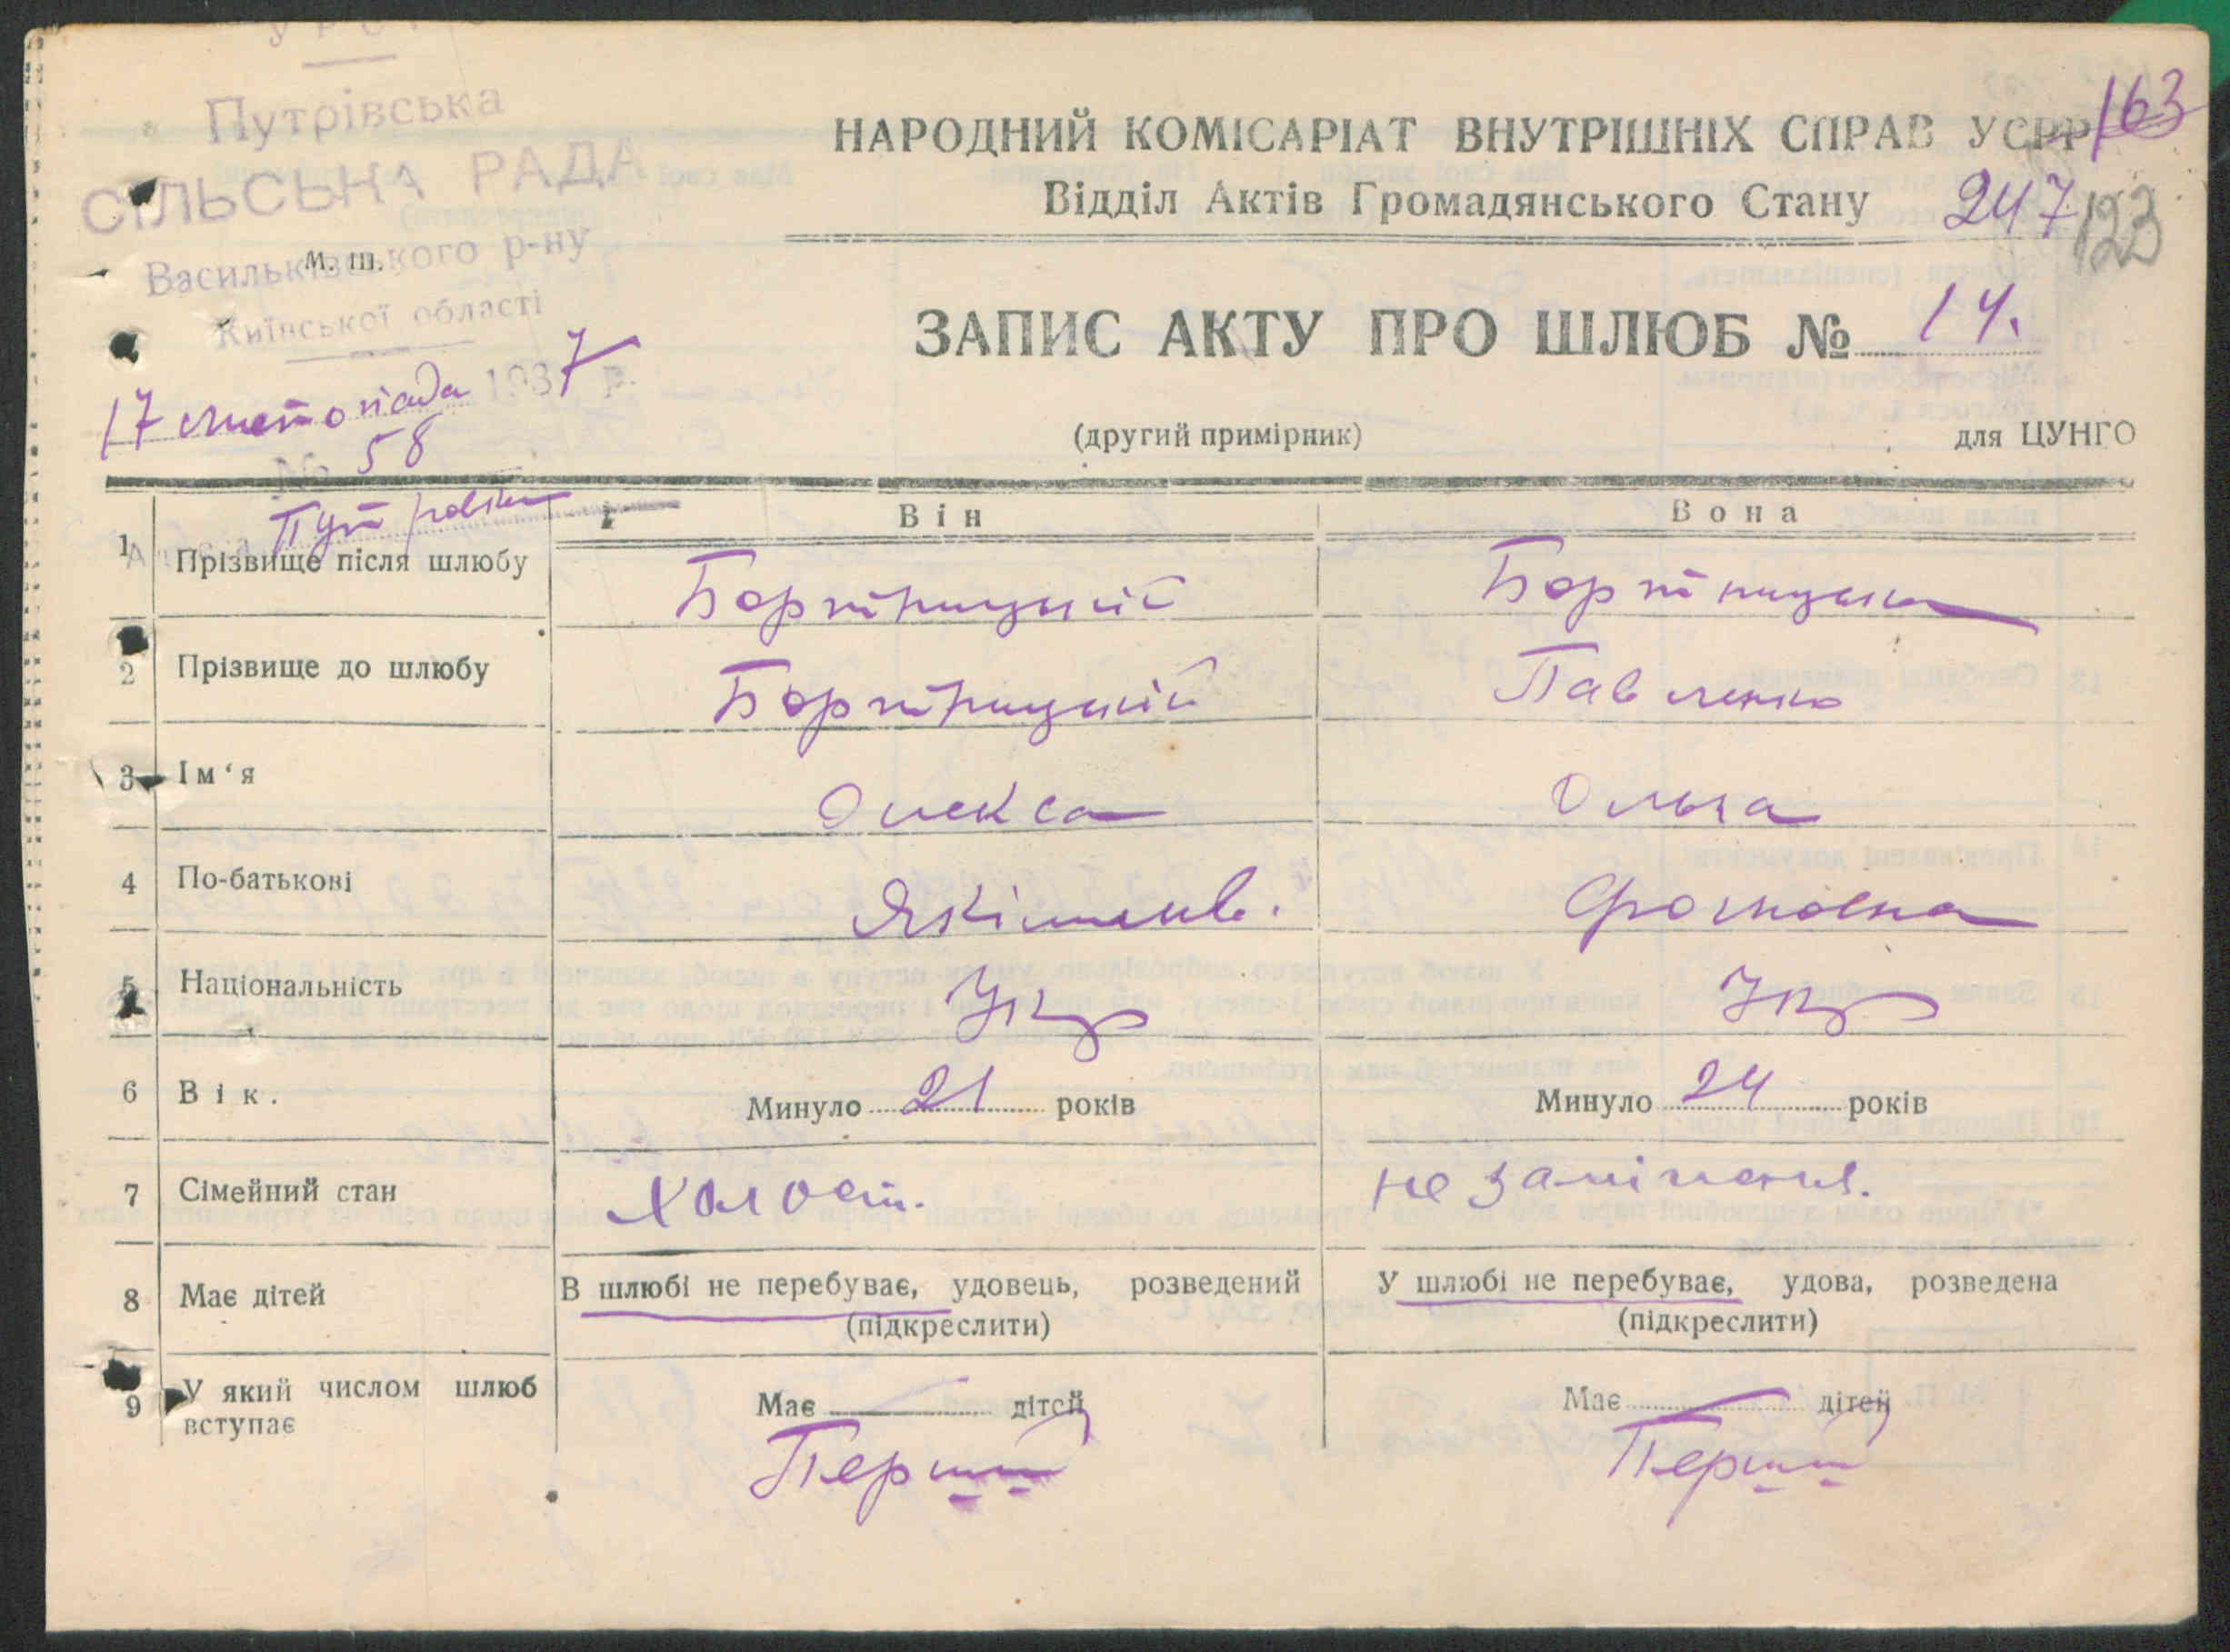 УРСР
Путрівська
СІЛЬСЬКА РАДА
Васильківського р-ну
м. ш.
Київської області
17 листопада 1937 р.
№ 58
Путрівка
НАРОДНИЙ КОМІСАРІАТ ВНУТРІШНІХ СПРАВ УСРР
163
Відділ Актів Громадянського Стану
247
123
ЗАПИС АКТУ ПРО ШЛЮБ № 14.
(другий примірник)
для ЦУНГО
Він Вона
1 Прізвище після шлюбу Бортницький Бортницька
2 Прізвище до шлюбу Бортницький Павленко
3 Ім‘я Олекса Ольга
4 По-батькові Якімов.
5 Національність Укр Укр
6 Вік. Минуло 21 років Минуло 24 років
7 Сімейний стан Холост. не заміжня.
8 Має дітей В шлюбі не перебуває, удовець, розведений У шлюбі не перебуває, удова, розведена
(підкреслити) (підкреслити)
9 У який числом шлюб Має дітей Має дітей
вступає Перший Перший